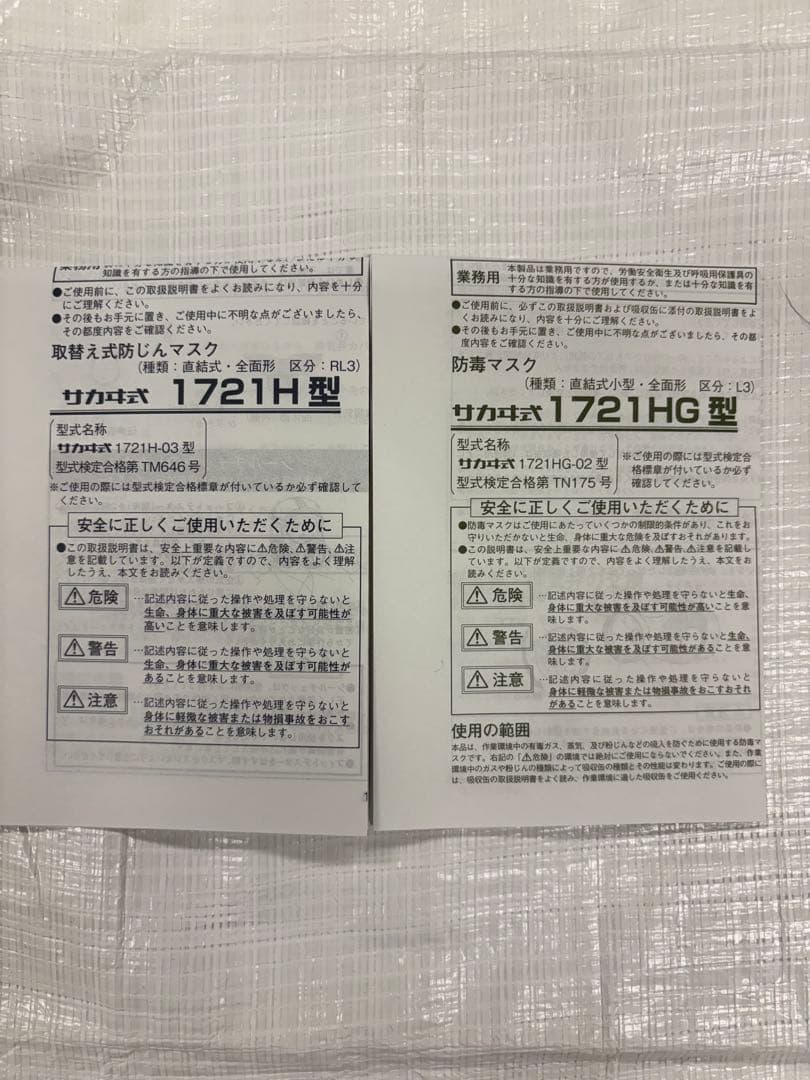 知識を有する方の指導の下で使用してください。
●ご使用前に、この取扱説明書をよくお読みになり、内容を十分
にご理解ください。
●その後もお手元に置き、ご使用中に不明な点がございましたら、
その都度内容をご確認ください。
取替え式防じんマスク
(種類：直結式・全面形　区分：RL3)
サカヰ式 1721H 型
型式名称
サカヰ式 1721H-03 型
型式検定合格第 TM646 号
※ご使用の際には型式検定合格標章が付いているか必ず確認して
ください。
安全に正しくご使用いただくために
●この取扱説明書は、安全上重要な内容に⚠危険、⚠警告、⚠注
意を記載しています。以下が定義ですので、内容をよく理解
したうえ、本文をお読みください。
⚠危険 …記述内容に従った操作や処理を守らないと
生命、身体に重大な被害を及ぼす可能性が
高いことを意味します。
⚠警告 …記述内容に従った操作や処理を守らないと
生命、身体に重大な被害を及ぼす可能性が
あることを意味します。
⚠注意 …記述内容に従った操作や処理を守らないと
身体に軽微な被害または物損事故をおこす
おそれがあることを意味します。
1
業務用
本製品は業務用ですので、労働安全衛生及び呼吸用保護具の
十分な知識を有する方が使用するか、または十分な知識を有
する方の指導の下で使用してください。
●ご使用前に、必ずこの取扱説明書および吸収缶に添付の取扱説明書をよ
くお読みになり、内容を十分にご理解ください。
●その後もお手元に置き、ご使用中に不明な点がございましたら、その都
度内容をご確認ください。
防毒マスク
(種類：直結式小型・全面形　区分：L3)
サカヰ式 1721HG 型
型式名称
サカヰ式 1721HG-02 型
型式検定合格第 TN175 号
※ご使用の際には型式検定合
格標章が付いているか必ず
確認してください。
安全に正しくご使用いただくために
●防毒マスクはご使用にあたっていくつかの制限的条件があり、これをお
守りいただかないと生命、身体に重大な危険を及ぼすおそれがあります。
●この説明書は、安全上重要な内容に⚠危険、⚠警告、⚠注意を記載し
ています。以下が定義ですので、内容をよく理解したうえ、本文をお
読みください。
⚠危険 …記述内容に従った操作や処理を守らないと生命、
身体に重大な被害を及ぼす可能性が高いことを意
味します。
⚠警告 …記述内容に従った操作や処理を守らないと生命、
身体に重大な被害を及ぼす可能性があることを意
味します。
⚠注意 …記述内容に従った操作や処理を守らないと
身体に軽微な被害または物損事故をおこすおそれ
があることを意味します。
使用の範囲
本品は、作業環境中の有毒ガス、蒸気、及び粉じんなどの吸入を防ぐために使用する防毒マ
スクです。右記の「⚠危険」の環境では絶対にご使用にならないでください。また、作業
環境中のガスや粉じんの種類によって吸収缶の種類とその性能は変わります。ご使用の際に
は、吸収缶の取扱説明書をよく読み、作業環境に適した吸収缶をご使用ください。